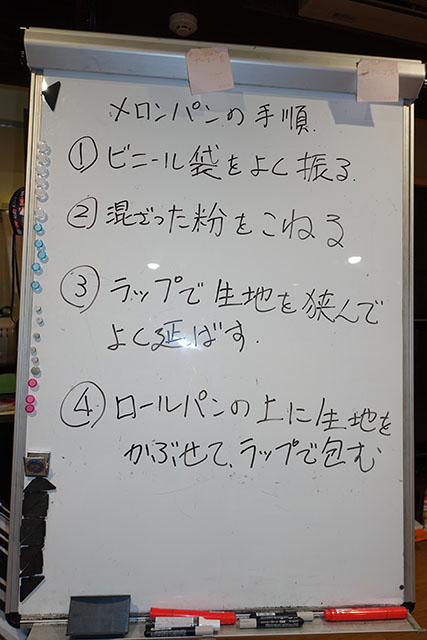 メロンパンの手順.
① ビニール袋をよく振る.
② 混ざった粉をこねる
③ ラップで生地を挟んで
よく延ばす.
④ ロールパンの上に生地を
かぶせて、ラップで包む